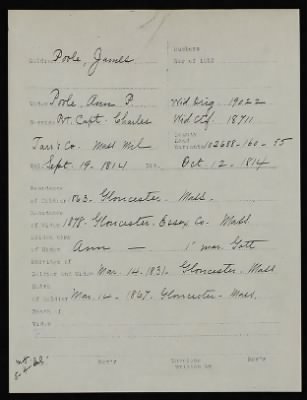 Numbers
Soldier Poole, James War of 1812
Widow Poole, Ann P. Wid. Orig. 19022
Service Pvt. Capt. Charles Wid. Ctf. 18711
Bounty
Land
Tarr's Co. Mass Mil Warrants 102688-160-55
Enl. Sept. 19-1814 Dis. Oct. 12-1814
Residence
of Soldier 1863-Gloucester-Mass.
Residence
of Widow 1878-Gloucester-Essex Co-Mass
Maiden name
of Widow Ann — 1st mar. Gott
Marriage of
Soldier and Widow Mar. 14-1831-Gloucester-Mass
Death
of Soldier Mar. 14-1867-Gloucester-Mass.
Death of
Widow
Rem'k Envelope Rem'k
Written by